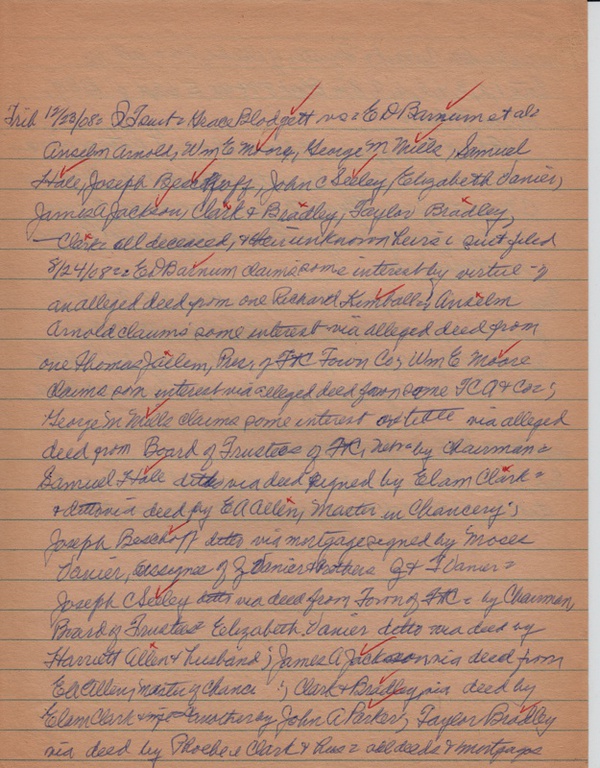 Trib 12/23/08= Q T suit= Grace Blodgett vs= E D Barnum et al=
Anselm Arnold, Wm E Moore, George M Mills, Samuel
Hale, Joseph Beschoff, John C Seeley, Elizabeth Vanier,
James A Jackson, Clark & Bradley, Taylor Bradley,
— Clark= all deceased, & their unknown heirs= suit filed
8/24/08== E D Barnum claims some interest by virtue of
an alleged deed from one Richard Kimball; Anselm
Arnold claims some interest via alleged deed from
one Thomas, Pres, of Town Co; Wm E Moore
claims som interest via alleged deed from some & Co=;
George M Mills claims some interest via alleged
deed from Board of Trustees of, by Chairman=
Samuel Hale ditto via deed signed by Elam Clark=
& ditto via deed by E A Allen, Master in Chancery;
Joseph Beschoff ditto via mortgage signed by Moses
Vanier, assignee of Vanier & Brothers & Vanier=
Joseph C Seeley ditto via deed from Town of = by Chairman,
Board of Trustees Elizabeth Vanier ditto via deed by
Harriett Allen & husband; James A Jackson via deed from
E A Allen, master of Chance; Clark & Bradley via deed by
Elam Clark & another by John A Parker; Taylor Bradley
via deed by Phoebe Clark & hus= all deeds & mortgaps